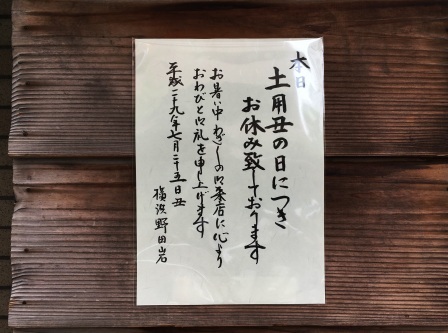 本日
土用丑の日につき
お休み致しております
お暑い中わざわざの御来店に心より
おわびと御礼を申し上げます
平成二十九年七月二十五日丑
横浜野田岩